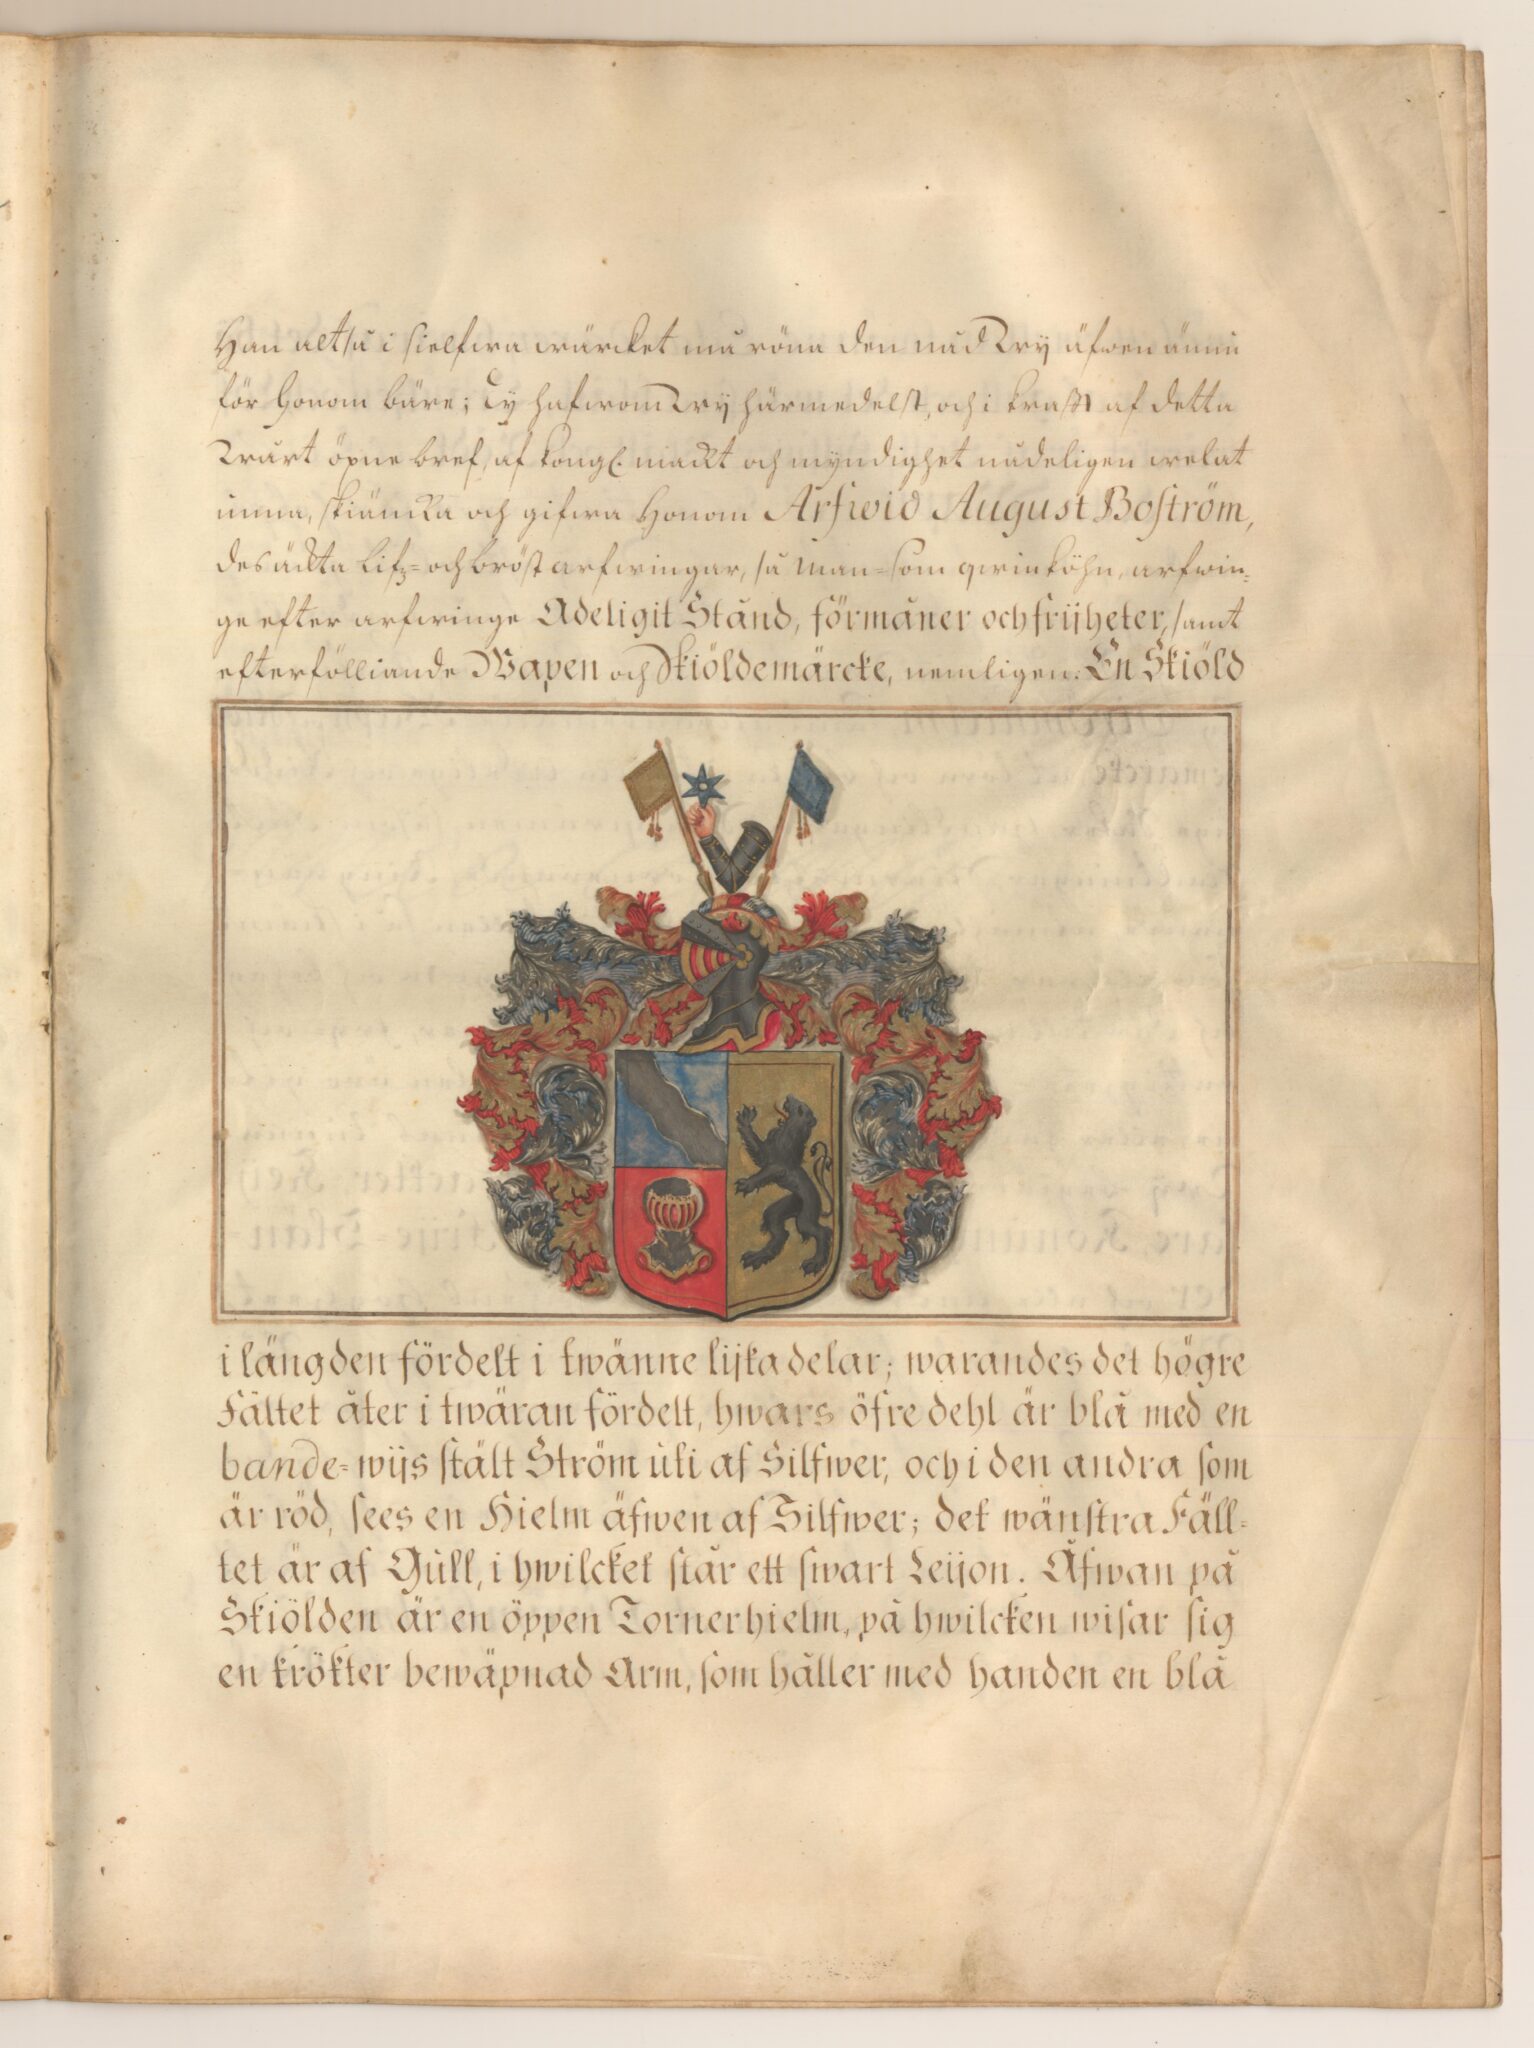 Han altså i sielfwa wärcket må röna den nåd Wy äfwen ännu
för honom bäre; Ty hafwom Wy härmedelst, och i krafft af detta
Wårt öpne bref, af Kongl. mackt och myndighet nådeligen welat
unna, skiäncka och gifwa Honom Arfwid August Boström,
des äckta Lifz- och bröst arfwingar, så Man- som qwinköhn, arfwin-
ge efter arfwinge Adeligit Stånd, förmåner och frijheter, samt
efterfölliande Wapen och Skiöldemärcke, nemligen: En Skiöld
i längden fördelt i twänne lijka delar; warandes det högre
Fältet åter i twäran fördelt, hwars öfre dehl är blå med en
bande-wijs stält Ström uti af Silfwer, och i den andra som
är röd, sees en Hielm äfwen af Silfwer; det wänstra Fäll-
tet är af Gull, i hwilcket står ett swart Leijon. Åfwan på
Skiölden är en öppen Tornerhielm, på hwilcken wisar sig
en krökter bewäpnad Arm, som håller med handen en blå